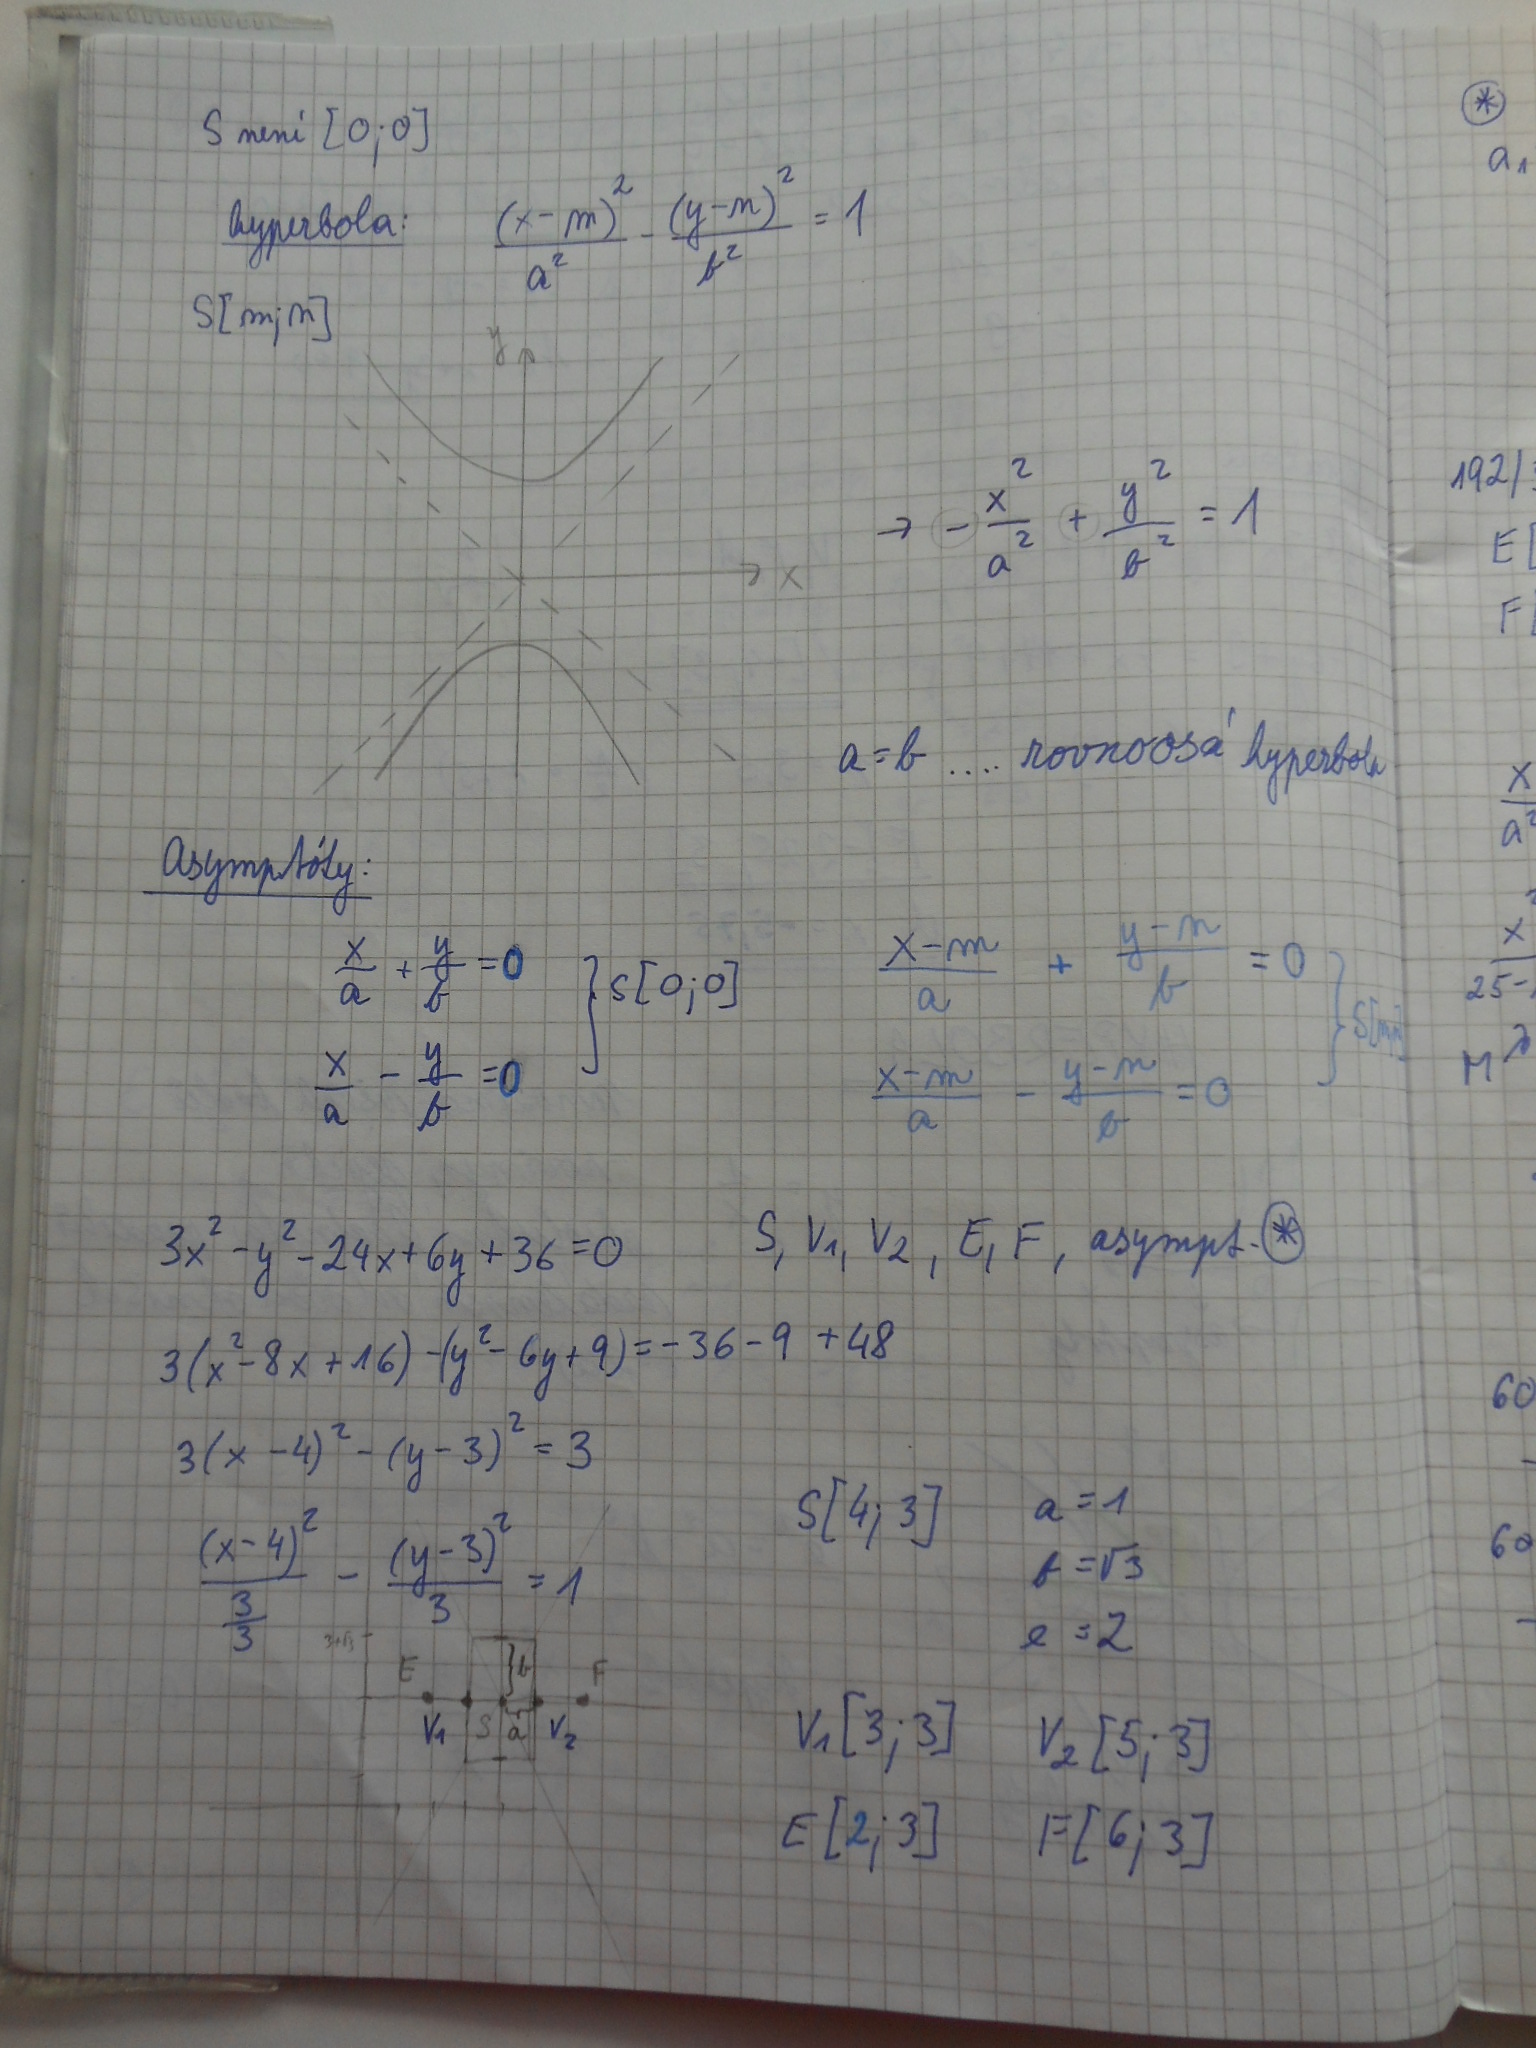 S není [0;0]
hyperbola: (x-m)²/a² - (y-n)²/b² = 1
S[m;n]
y
x
→ -x²/a² + y²/b² = 1
a=b .... rovnoosá hyperbola
Asymptóty:
x/a + y/b = 0
x/a - y/b = 0
} S[0;0]
(x-m)/a + (y-n)/b = 0
(x-m)/a - (y-n)/b = 0
} S[m;n]
3x² - y² - 24x + 6y + 36 = 0 S, V₁, V₂, E, F, asympt. ⊛
3(x² - 8x + 16) - (y² - 6y + 9) = -36 - 9 + 48
3(x - 4)² - (y - 3)² = 3
(x-4)²/(3/3) - (y-3)²/3 = 1
S[4; 3] a = 1
b = √3
e = 2
3+√3
E }b F
V₁ S a V₂
V₁[3; 3] V₂[5; 3]
E[2; 3] F[6; 3]
⊛
a₁
192/
E[
F[
x
a²
x²
25-
M
60
60